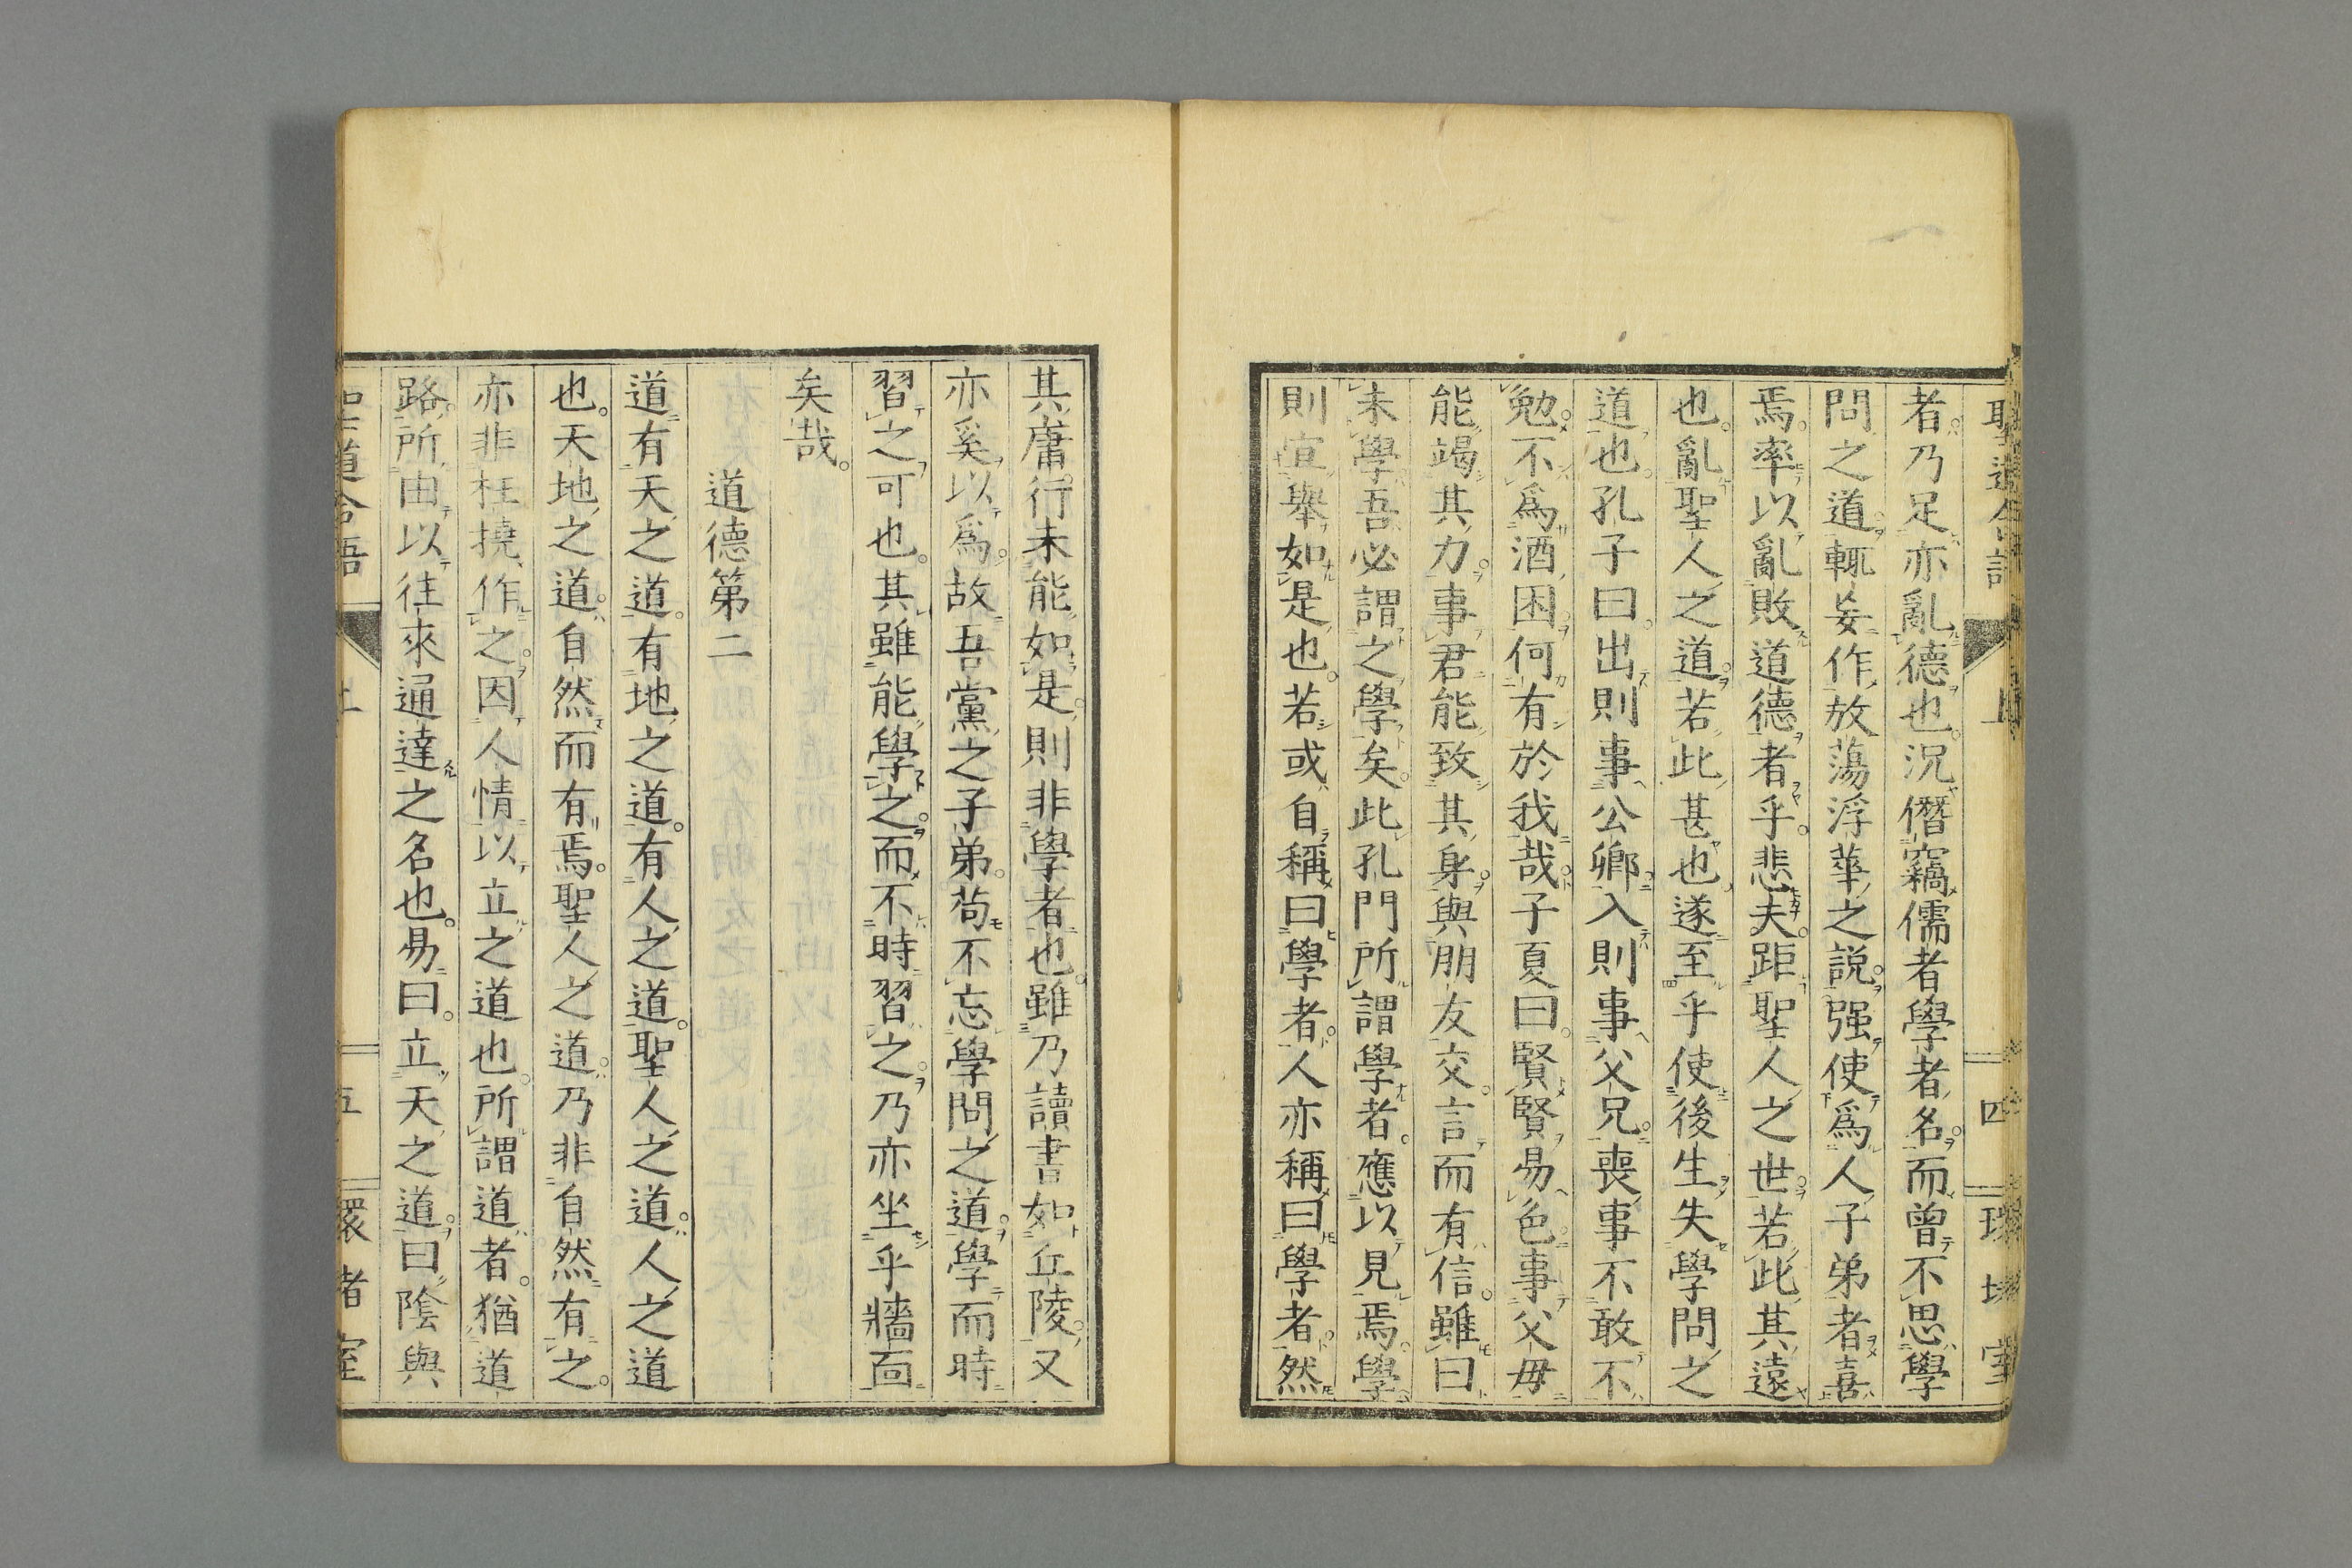 者乃足亦亂德也況僭竊儒者學者名而曾不思學
問之道輒妄作放蕩浮華之説强使爲人子弟者喜
焉率以亂敗道德者乎悲夫距聖人之世若此其遠
也亂聖人之道若此甚也遂至乎使後生失學問之
道也孔子曰出則事公卿入則事父兄喪事不敢不
勉不爲酒困何有於我哉子夏曰賢賢易色事父母
能竭其力事君能致其身與朋友交言而有信雖曰
未學吾必謂之學矣此孔門所謂學者應以見焉學
則宜舉如是也若或自稱曰學者人亦稱曰學者然
其庸行未能如是則非學者也雖乃讀書如丘陵又
亦奚以爲故吾黨之子弟苟不忘學問之道學而時
習之可也其雖能學之而不時習之乃亦坐乎牆面
矣哉
道德第二
道有天之道有地之道有人之道聖人之道人之道
也天地之道自然而有焉聖人之道乃非自然有之
亦非枉撓作之因人情以立之道也所謂道者猶道
路所由以往來通達之名也易曰立天之道曰陰與
聖道合語 上 五 環堵室